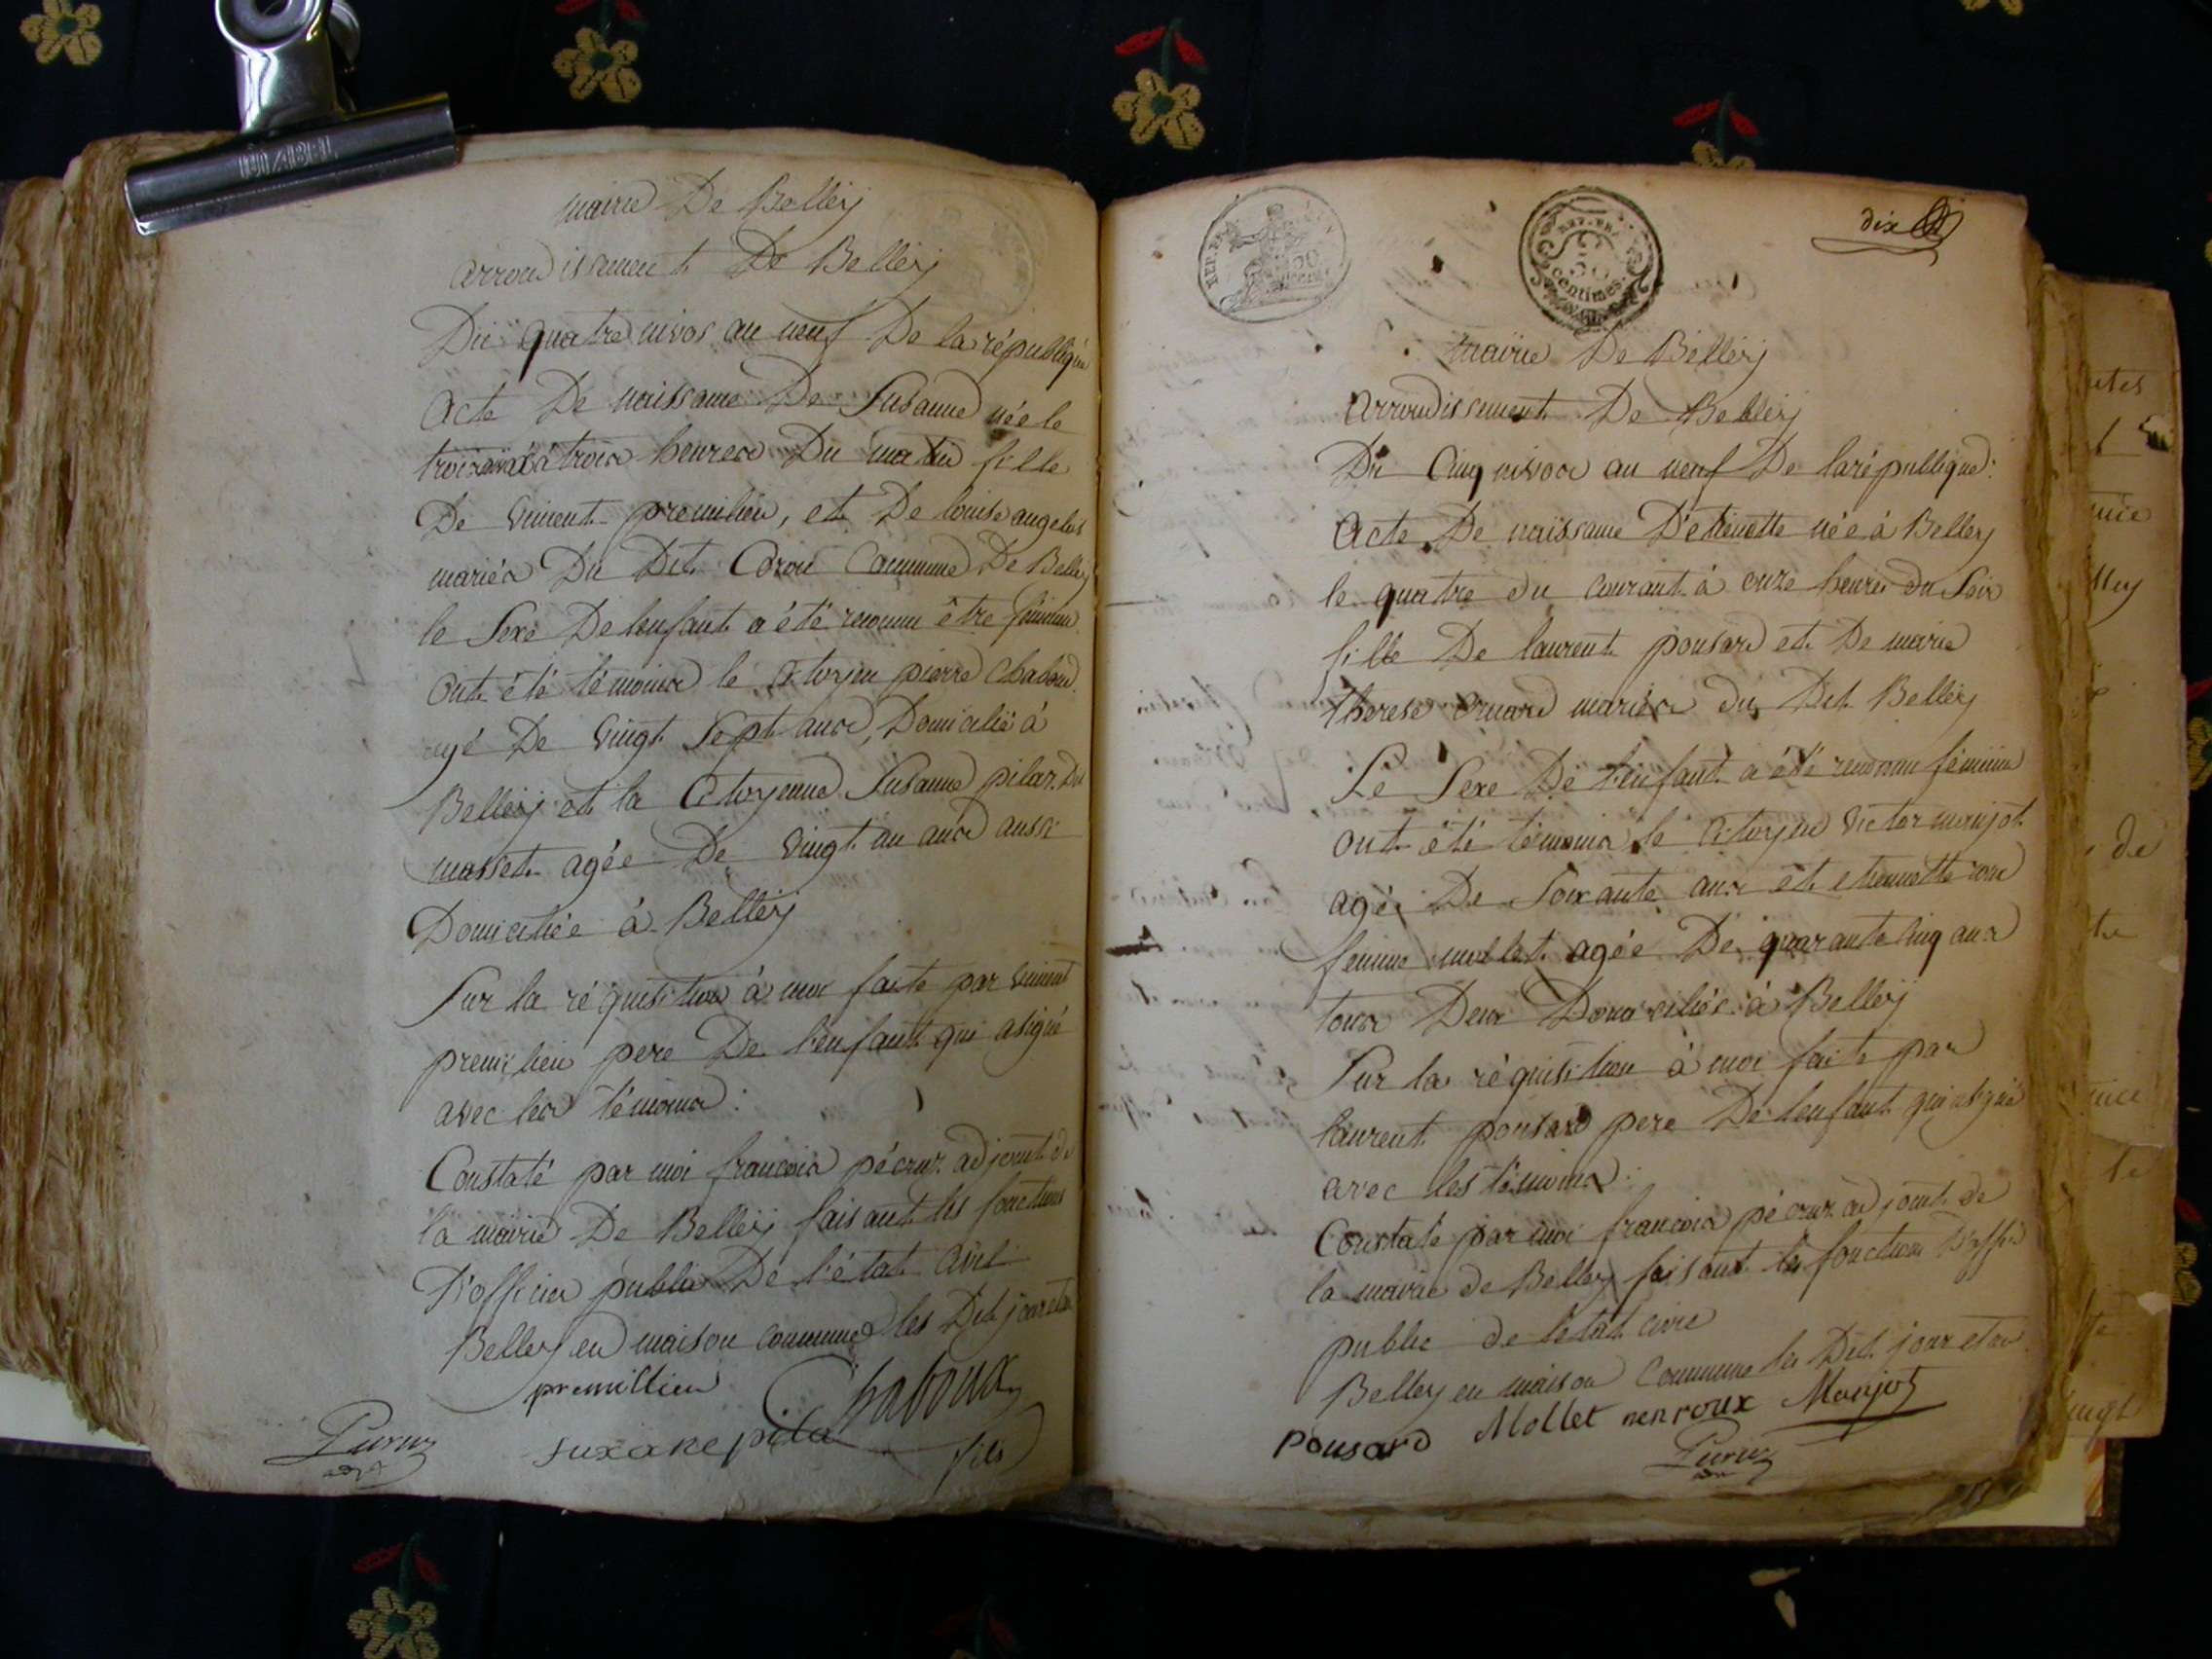 mairie De Belleÿ
arrondissement De Belleÿ
Du quatre nivos an neuf De la république
Acte De naissance De Susanne née le
à trois heures Du matin fille
De vincent premilieu, et De louise
mariés Du Dit Coron Commune De Belley
le Sexe De lenfant a été reconnu être féminin
Ont été témoins le Citoyen pierre Chaboud
agé De vingt Sept ans, Domicilié à
Belleÿ et la Citoyenne Susanne pilaz Du
masset agée De vingt un ans aussi
Domiciliée à Belleÿ
Sur la réquisition à moi faite par vincent
premilieu pere De l'enfant qui a signé
avec les témoins :
Constaté par moi francois pécruz adjoint de
la mairie De Belleÿ faisant les fonctions
D'officier public De l'état civil
Belley en maison commune les Dit jour et an
premillieu Chaboux
Susane pila fils
Puruz
REP. FRA. 50
REP. FRA. 50 centimes
dix
mairie De Belleÿ
arrondissement De Belleÿ
Du Cinq nivos an neuf De la république :
Acte De naissance D'etiennette née à Belley
le quatre du courant à onze heures du Soir
fille De laurent ponsard et De marie
therese mariés du Dit Belleÿ
Le Sexe De l'enfant a été reconnu féminin
ont été témoins le Citoyen victor manjot
agé De Soixante ans et etiennette roux
femme mollet agée De quarante Cinq ans
tous Deux Domiciliés à Belleÿ
Sur la réquisition à moi faite par
laurent ponsard pere De lenfant qui a signé
avec les témoins :
Constaté par moi francois pécruz adjoint de
la mairie de Belley faisant les fonctions D'officier
public de l'état civil
Belley en maison Commune les Dit jour et an
Ponsard Mollet nenroux Manjot
Puruz
de
le
vingt